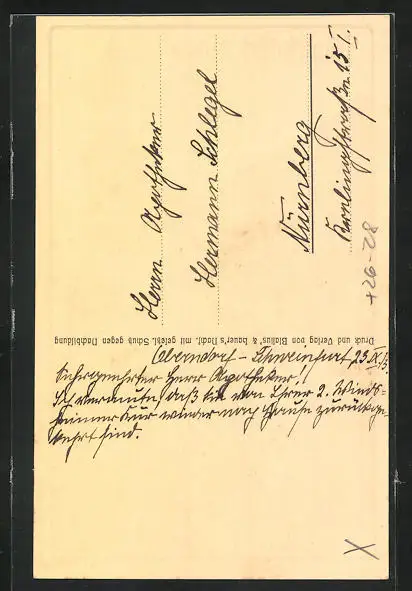 Herrn Apotheker
Hermann Schlegel
Nürnberg
Karolinenstraße 15 I.
+26-28
Druck und Verlag von Blasius & bauer's Nachf. mit gesetzl. Schutz gegen Nachbildung
Oberndorf-Schweinfurt, 23. IX. 13.
Sehrgeehrter Herr Apotheker!
Ich vermute, daß Sie von Ihrer 2. Winds-
heimer Kur wieder nach Hause zurückge-
kehrt sind.
X